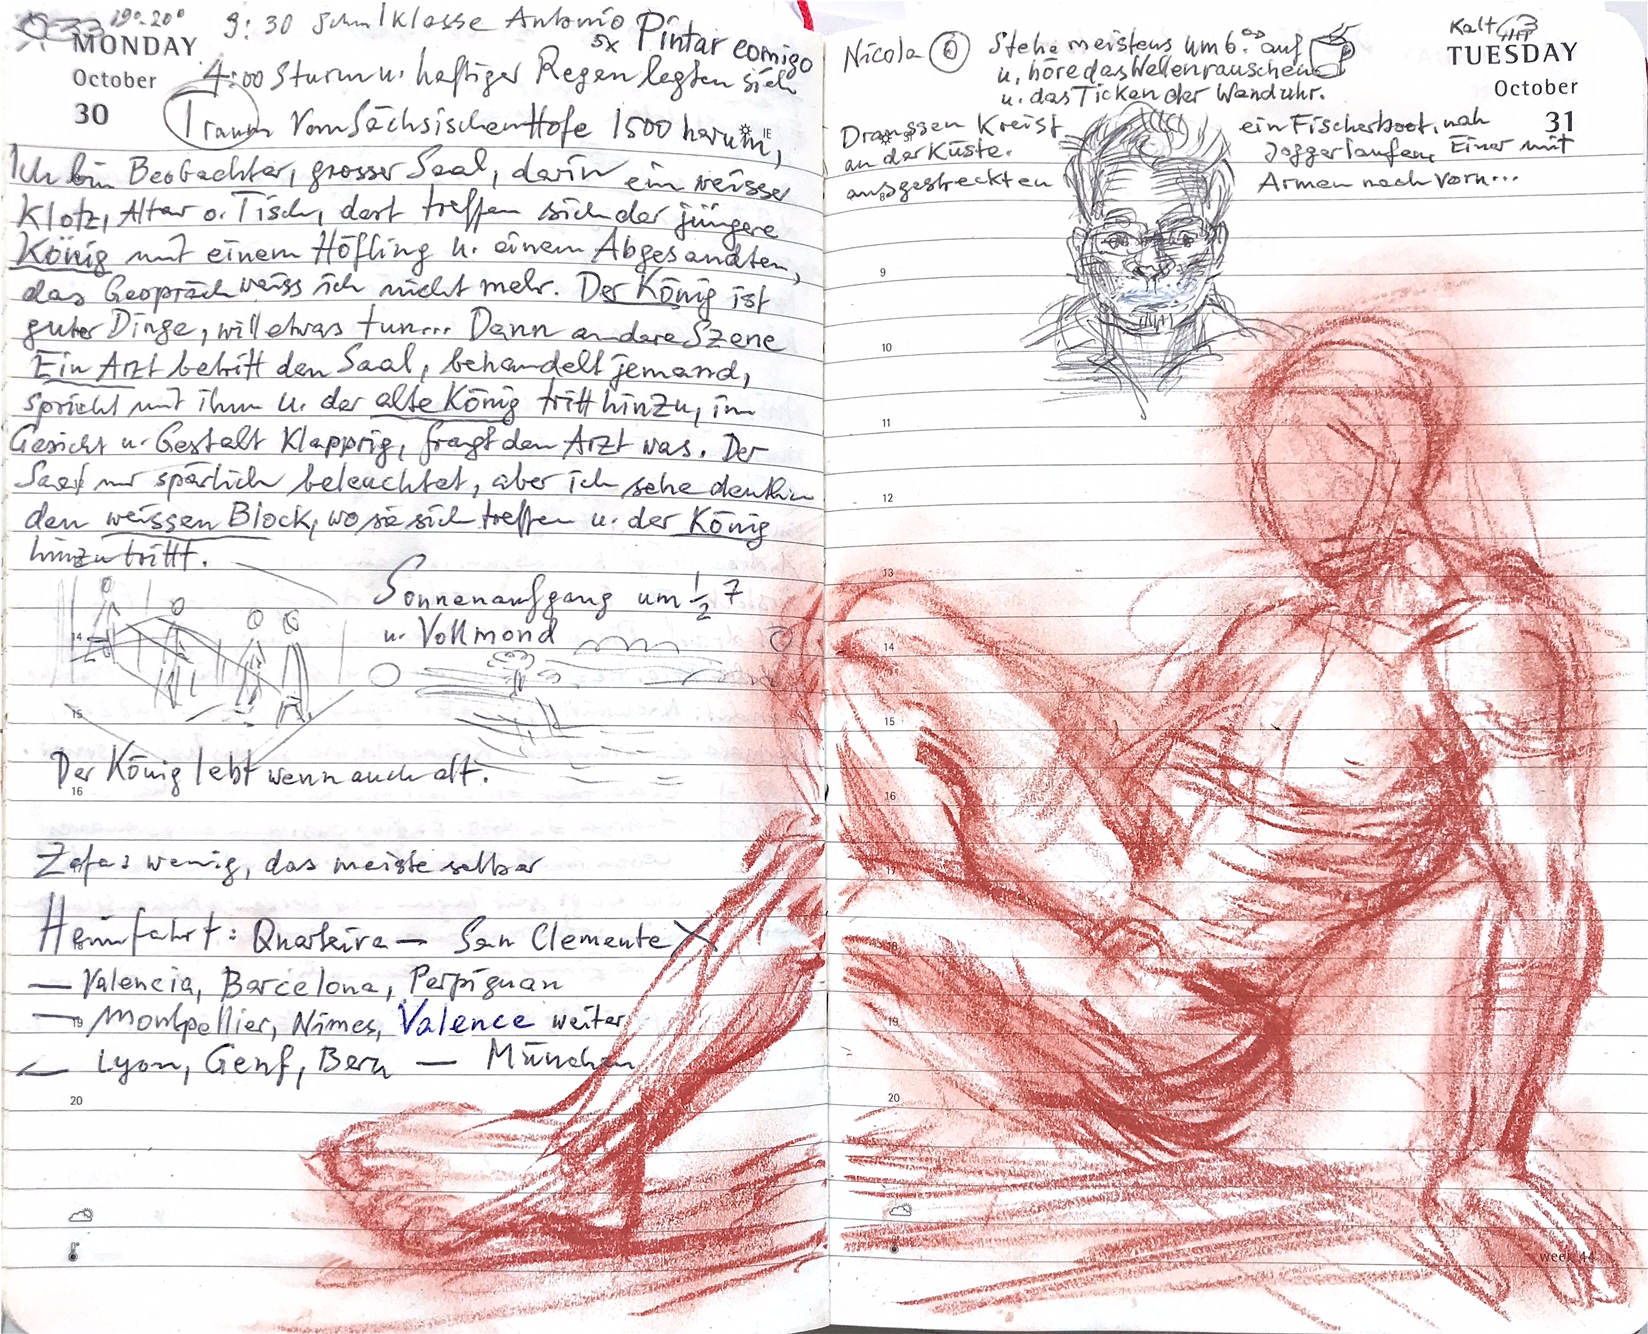 19°-20° 9:30 Schulklasse Antonio
5x Pintar comigo
MONDAY
October
30
4:00 Sturm u. heftiger Regen legten sich
Traum vom Sächsischen Hofe 1500 harum,
Ich bin Beobachter, grosser Saal, darin ein weisser
Klotz, Altar o. Tisch, dort treffen sich der jüngere
König mit einem Höfling u. einem Abgesandten,
das Gespräch weiss ich nicht mehr. Der König ist
guter Dinge, will etwas tun... Dann andere Szene
Ein Arzt betritt den Saal, behandelt jemand,
spricht mit ihm u. der alte König tritt hinzu, im
Gesicht u. Gestalt Klapprig, fragt den Arzt was. Der
Saal nur spärlich beleuchtet, aber ich sehe deutlich
den weissen Block, wo sie sich treffen u. der König
hinzutritt.
Sonnenaufgang um 1/2 7
u. Vollmond
14
15
Der König lebt wenn auch alt.
16
wenig, das meiste selber
Heimfahrt: Quarteira — San Clemente X
— Valencia, Barcelona, Perpignan
— 19 Montpellier, Nimes, Valence weiter
Lyon, Genf, Bern — München
20
Nicola 6 Stehe meistens um 6:00 auf
u. höre das Wellenrauschen
u. das Ticken der Wanduhr.
Kalt
TUESDAY
October
31
Draussen Kreist ein Fischerboot, nah
an der Küste. Jogger laufen, Einer mit
ausgestreckten Armen nach vorn...
8
9
10
11
12
13
14
15
16
17
18
19
20
week 44